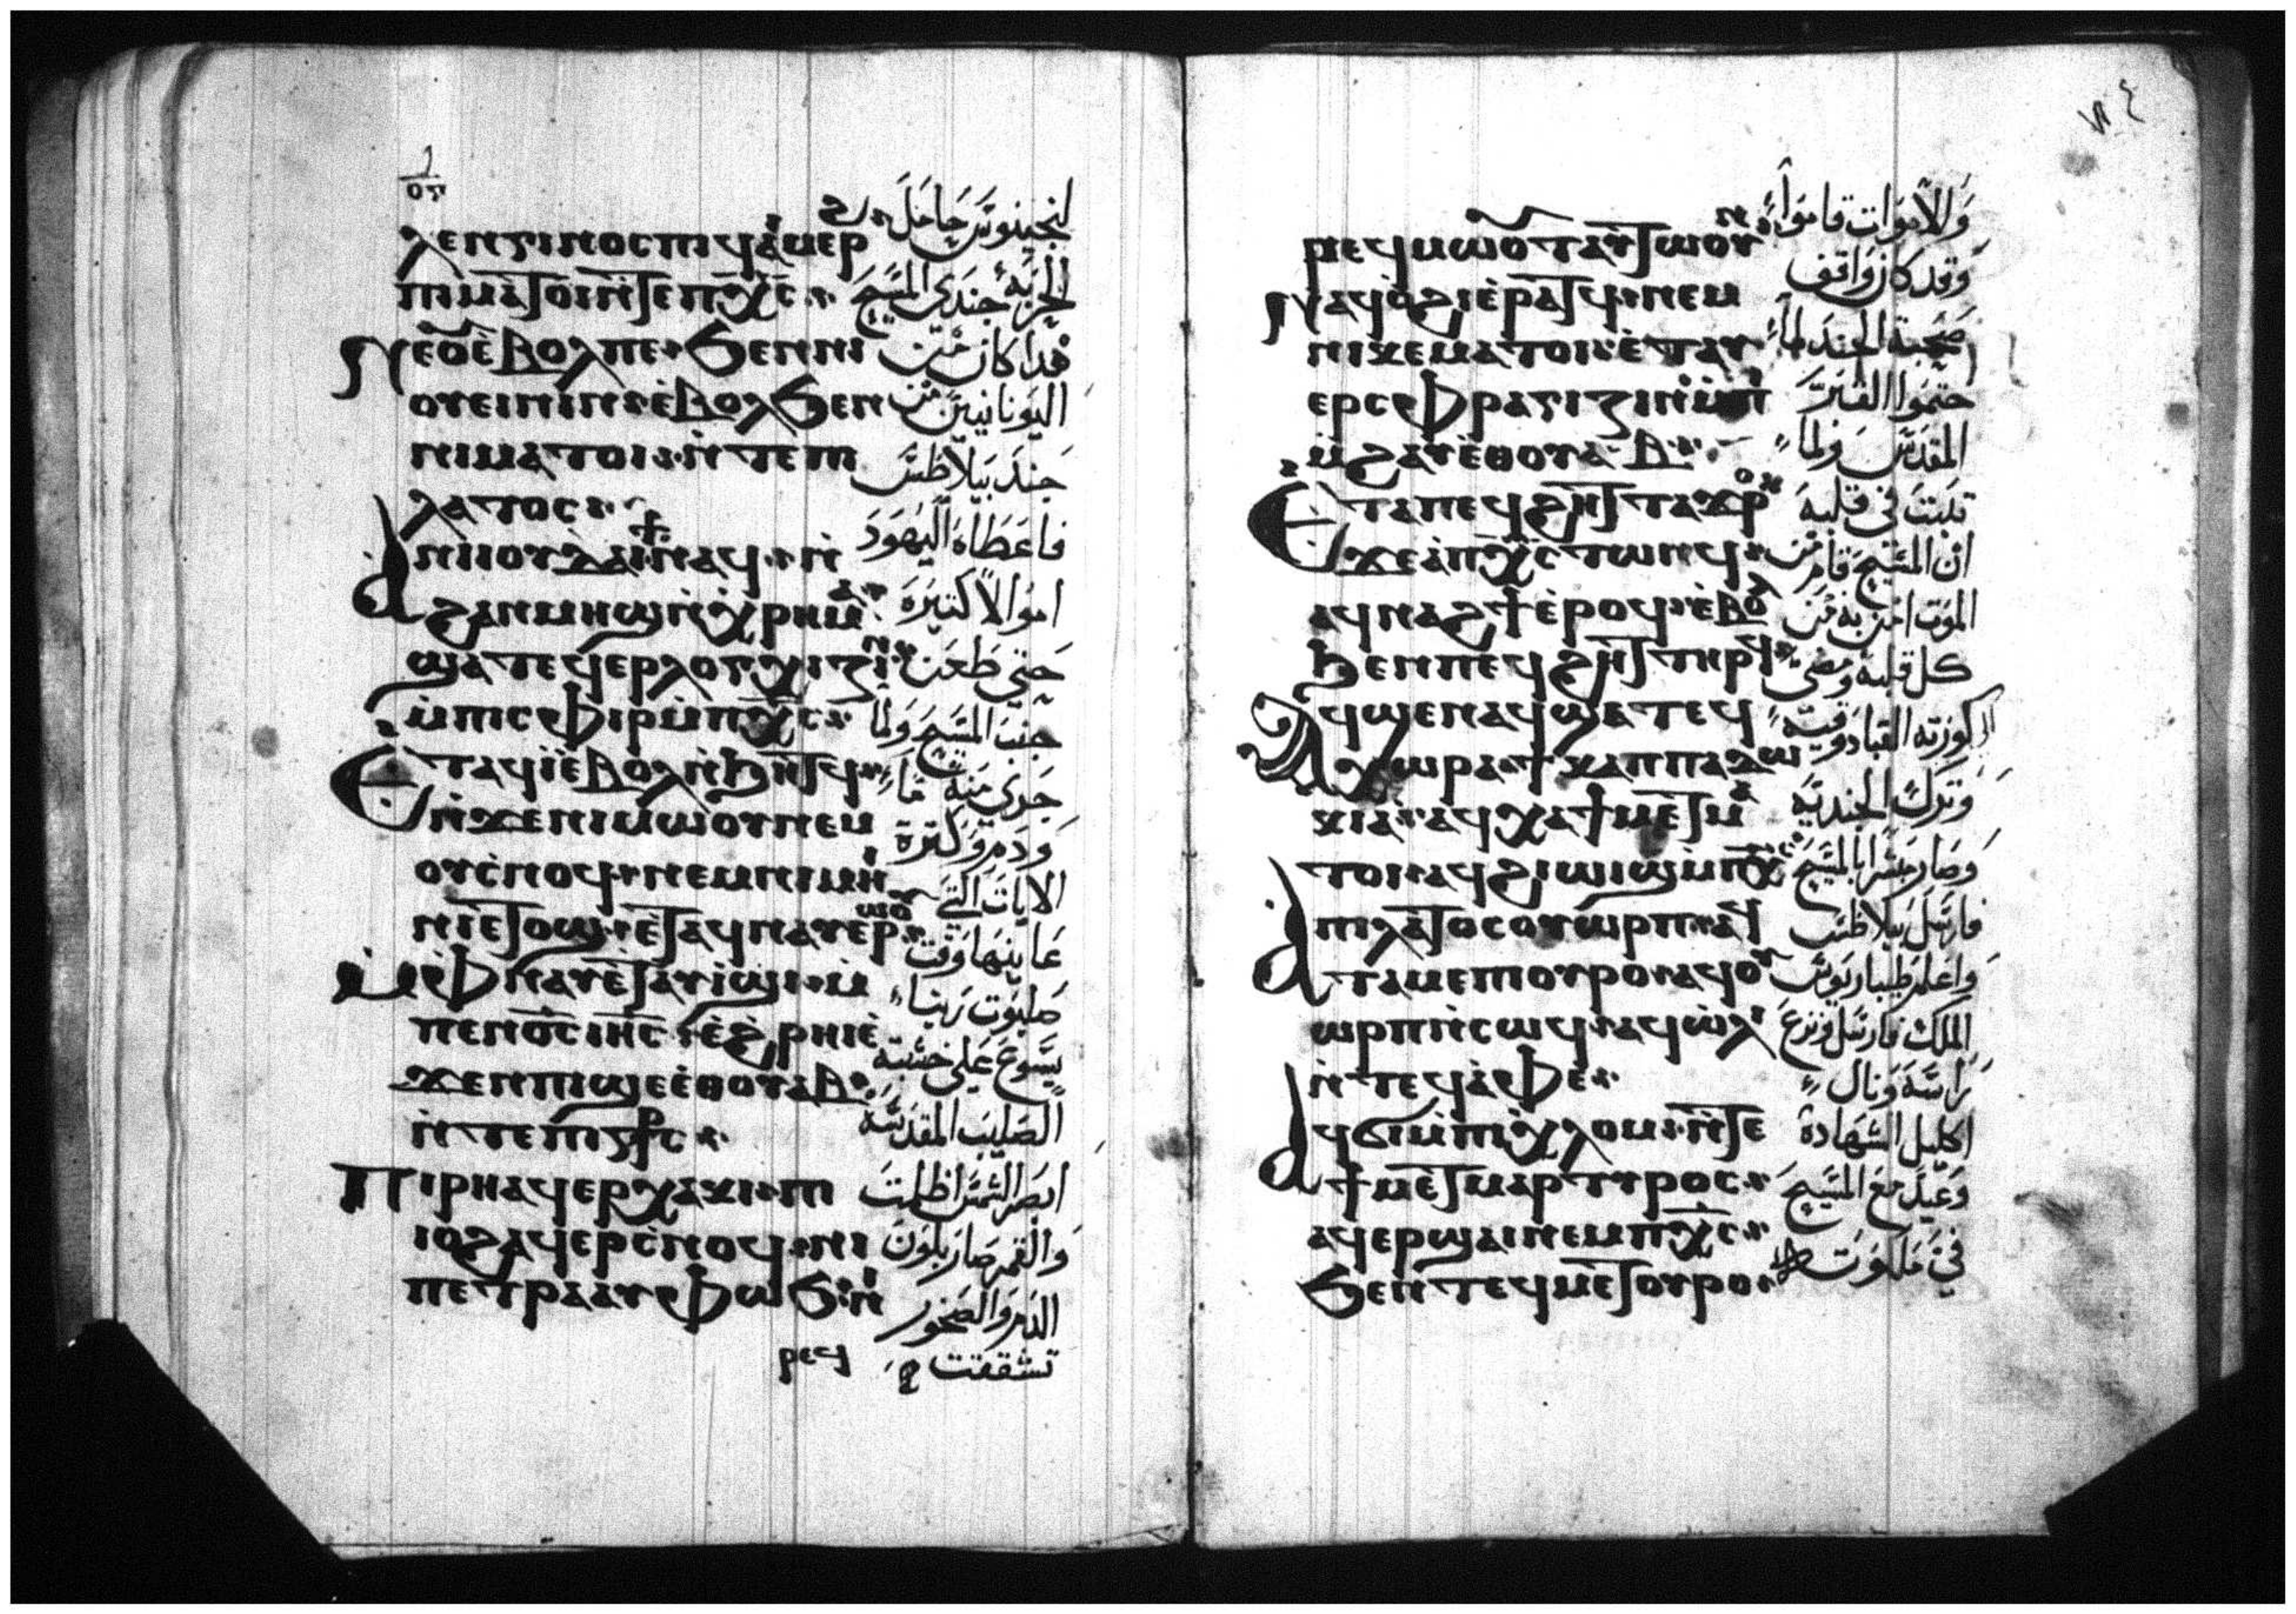 ⲗⲉⲛⲅⲓⲛⲟⲥ ⲡⲓϥⲁⲓⲙⲉⲣⲉϩ
ⲡⲓⲙⲁⲧⲟⲓ ⲛⲧⲉ ⲡⲭⲥ
ⲛⲉⲟⲩⲉⲃⲟⲗ ⲡⲉ ϧⲉⲛ ⲛⲓ
ⲟⲩⲉⲓⲛⲓⲛ ⲉⲃⲟⲗ ϧⲉⲛ
ⲛⲓⲙⲁⲧⲟⲓ ⲛⲧⲉ ⲡⲓ
ⲗⲁⲧⲟⲥ
ⲁ ⲛⲓⲓⲟⲩⲇⲁⲓ ϯ ⲛⲁϥ ⲛ
ϩⲁⲛⲙⲏϣ ⲛⲭⲣⲏⲙⲁ
ϣⲁⲧⲉϥⲉⲣⲗⲟⲅⲭⲓⲍⲓⲛ
ⲙⲡⲓⲥⲫⲓⲣ ⲙⲡⲭⲥ
ⲉⲧⲁϥⲓ ⲉⲃⲟⲗ ⲛϧⲏⲧϥ
ⲛϫⲉ ⲛⲓⲙⲱⲟⲩ ⲛⲉⲙ
ⲟⲩⲥⲛⲟϥ ⲛⲉⲙ ⲛⲓⲙⲏ
ⲛⲓ ⲉⲧⲟϣ ⲉⲧⲁϥⲛⲁⲩ ⲉⲣⲱⲟⲩ
ⲙⲫⲛⲁⲩ ⲉⲧⲁⲩⲓϣⲓ ⲙ
ⲡⲉⲛⲟⲥ ⲓⲏⲥ ⲉϩⲣⲏⲓ ⲉ
ϫⲉⲛ ⲡⲓϣⲉ ⲉⲑⲟⲩⲁⲃ
ⲛⲧⲉ ⲡⲓⲥⲧⲣⲥ
ⲡⲓⲣⲏ ⲁϥⲉⲣⲭⲁⲕⲓ ⲡⲓ
ⲓⲟϩ ⲁϥⲉⲣⲥⲛⲟϥ ⲛⲓ
ⲡⲉⲧⲣⲁ ⲁⲩⲫⲱϧ ⲛⲓ
ⲣⲉϥ
لنجينوس حامل
الحربة جندي المسيح
هدا كان من
اليونانيين من
جند بيلاطس
فاعطاه اليهود
اموالا كتيرة
حتي طعن
جنب المسيح ولما
جري منه ما
ودم وكترة
الايات التي
عاينها وقت
صلبوت ربنا
يسوع علي خشبة
الصليب المقدسة
ابصر الشمس اظلمت
والقمر صار بلون
الدم والصخور
تشققت
٧٤
ⲣⲉϥⲙⲱⲟⲩⲧ ⲁⲩⲧⲱⲟⲩⲛ
ⲛⲁϥⲟϩⲓ ⲉⲣⲁⲧϥ ⲛⲉⲙ
ⲛⲓⲕⲉⲙⲁⲧⲟⲓ ⲉⲧⲁⲩ
ⲉⲣⲥⲫⲣⲁⲅⲓⲍⲓⲛ ⲙⲡⲓ
ⲙϩⲁⲩ ⲉⲑⲟⲩⲁⲃ
ⲉⲧⲁ ⲡⲉϥϩⲏⲧ ⲧⲁϫⲣⲟ
ϫⲉ ⲁ ⲡⲭⲥ ⲧⲱⲛϥ
ⲁϥⲛⲁϩϯ ⲉⲣⲟϥ ⲉⲃⲟⲗ
ϧⲉⲛ ⲡⲉϥϩⲏⲧ ⲧⲏⲣϥ
ⲁϥϣⲉⲛⲁϥ ϣⲁ ⲧⲉϥ
ⲭⲱⲣⲁ ϯⲕⲁⲡⲡⲁⲇⲱ
ⲕⲓⲁ ⲁϥⲭⲁ ϯⲙⲉⲧⲙⲁ
ⲧⲟⲓ ⲁϥϩⲓⲱⲓϣ ⲙⲡⲭⲥ
ⲁ ⲡⲓⲗⲁⲧⲟⲥ ⲟⲩⲱⲣⲡ ⲁϥ
ⲧⲁⲙⲉ ⲡⲓⲟⲩⲣⲟ ⲁϥⲟⲩ
ⲱⲣⲡ ⲛⲥⲱϥ ⲁϥⲱⲗⲓ
ⲛⲧⲉϥⲁⲫⲉ
ⲁϥϭⲓ ⲙⲡⲓⲭⲗⲟⲙ ⲛⲧⲉ
ϯⲙⲉⲧⲙⲁⲣⲧⲩⲣⲟⲥ
ⲁϥⲉⲣϣⲁⲓ ⲛⲉⲙ ⲡⲭⲥ
ϧⲉⲛ ⲧⲉϥⲙⲉⲧⲟⲩⲣⲟ
والاموات قاموا
وقد كان واقف
صحبة الجند لما
ختموا القبر
المقدس ولما
تبت في قلبه
ان المسيح قام من
الموت امن به من
كل قلبه ومضي
الي كورته القبادوقية
وترك الجندية
وصار مبشرا بالمسيح
فارسل بيلاطس
واعلم طيباريوس
الملك فارسل ونزع
راسه ونال
اكليل الشهادة
وعيد مع المسيح
في ملكوته